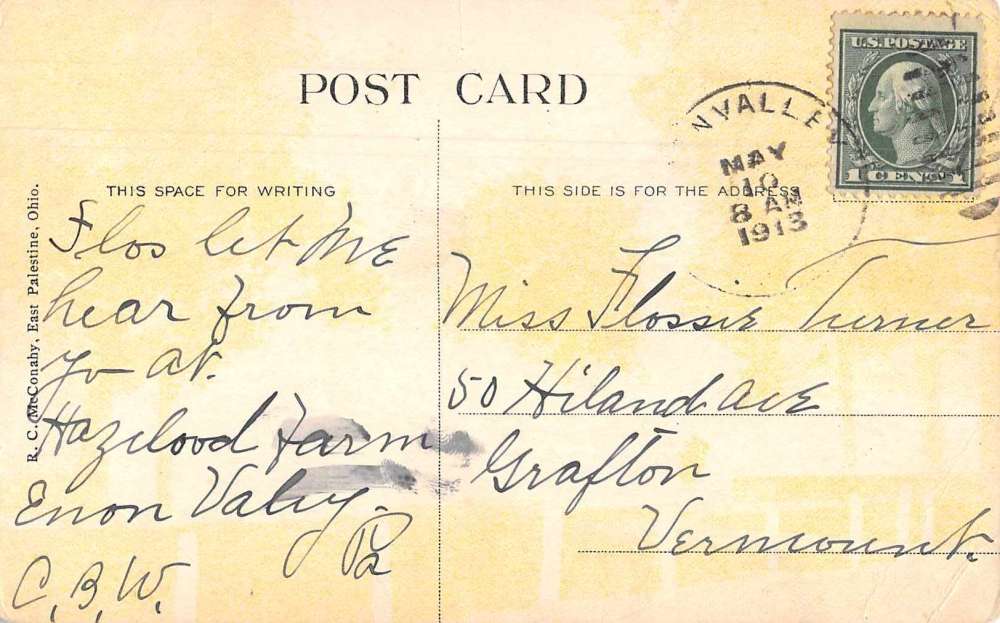 POST CARD
U.S. POSTAGE
1 CENT 1
NVALLE
MAY
10
8 AM
1913
THIS SPACE FOR WRITING
THIS SIDE IS FOR THE ADDRESS
R. C. McConahy, East Palestine, Ohio.
Flos let ME
hear from
yo at.
Hazelood Farm
Enon Valy.
Pa
C. B. W.
Miss Flossie Turner
50 Hiland ave
Grafton
Vermount.